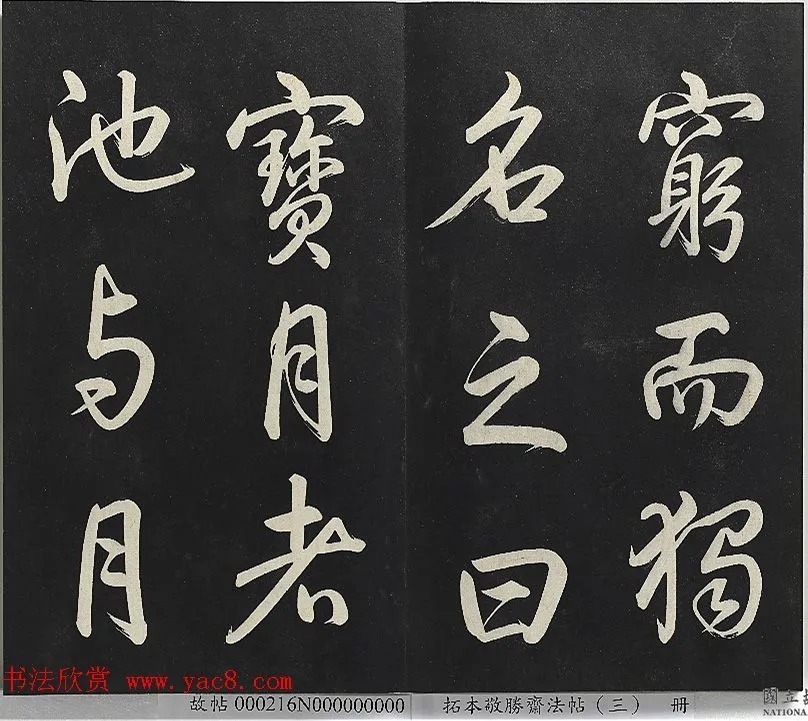 窮而獨
名之曰
寶月者
池与月
书法欣赏 www.yac8.com
故帖 000216N000000000
拓本敬勝齋法帖（三） 册
國立
NATIONA